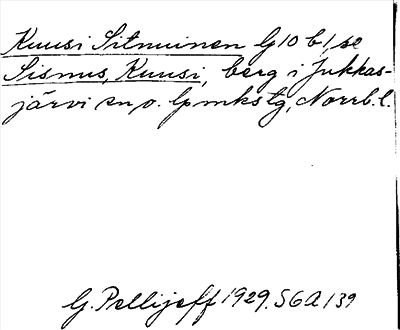 Kuusi Sitnuinen G 10 b 1, se
Sismus, Kuusi, berg i Jukkas-
järvi sn o. lpmkstg, Norrb. l.
G. Pellijeff 1929. S6A 139